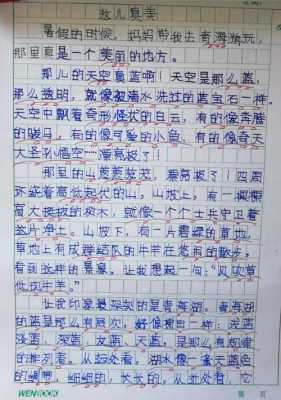 这儿真美
暑假的时候，妈妈带我去青海游玩，
那里真是一个美丽的地方。
那儿的天空真蓝啊！天空是那么蓝，
那么透明，就像被清水洗过的蓝宝石一样。
天空中飘着奇形怪状的白云，有的像奔腾
的骏马，有的像可爱的小鱼，有的像齐天
大圣孙悟空……漂亮极了！
那里的山葱葱茏茏，漂亮极了！四周
环绕着高低起伏的山，山坡上，有一棵棵
高大挺拔的树木，就像一个个士兵守卫着
这片净土。山坡下，有一片碧绿的草地，
草地上有成群结队的牛羊在悠闲的散步，
看到这样的景象，让我想起一句：“风吹草
低现牛羊。”
让我印象最深刻的是青海湖。青海湖
的蓝是那么有层次，好像调色一样：浅蓝
深蓝、灰蓝、天蓝，是那么有规律
的排列着。从远处看，湖水像一条天蓝色
的绸带，细细的，长长的，从近处看，它
WENBOOK
第 页